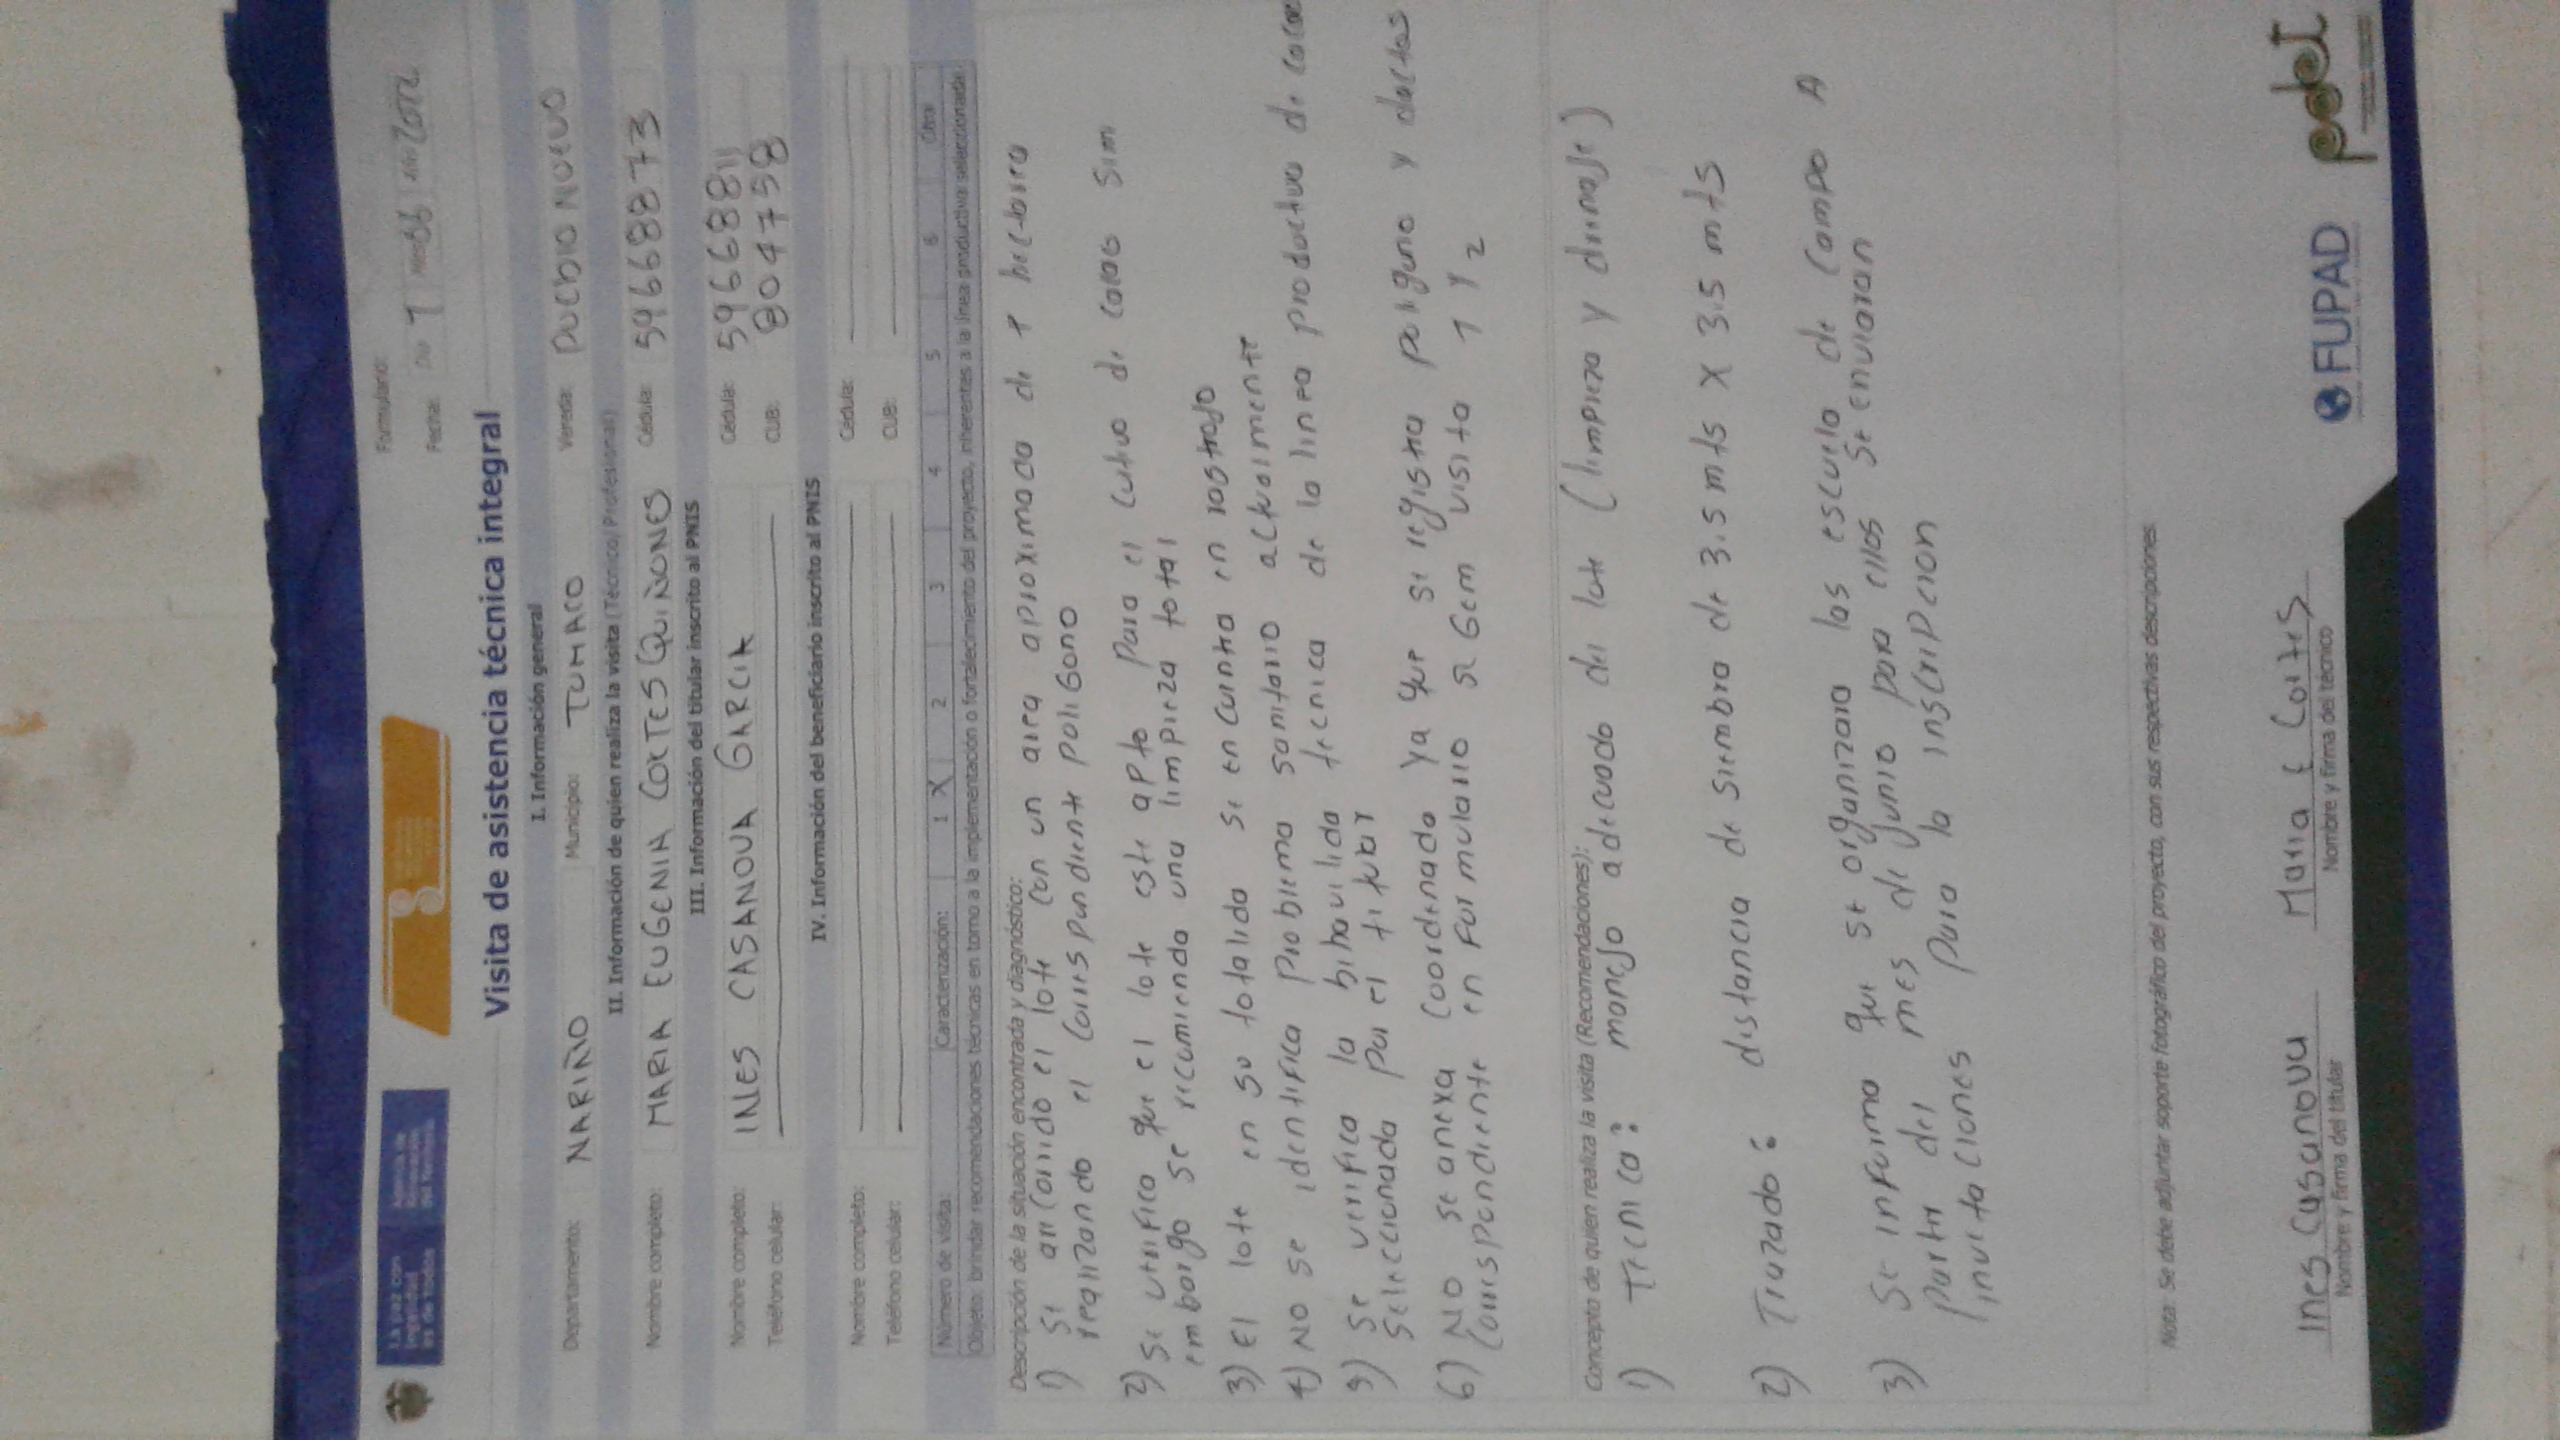 La paz con
legalidad
es de todos
Agencia de
Renovación
del Territorio
Formulario:
Fecha: Día 7 Mes 06 Año 2022
Visita de asistencia técnica integral
I. Información general
Departamento: NARIÑO Municipio: TUMACO Vereda: PUEBLO NUEVO
II. Información de quien realiza la visita (Técnico/Profesional)
Nombre completo: MARIA EUGENIA CORTES QUIÑONES Cédula: 59668873
III. Información del titular inscrito al PNIS
Nombre completo: INES CASANOVA GARCIA Cédula: 59668811
Teléfono celular: CUB: 804758
IV. Información del beneficiario inscrito al PNIS
Nombre completo: Cédula:
Teléfono celular: CUB:
Número de visita: Caracterización: 1 X 2 3 4 5 6 Otra
Objeto: brindar recomendaciones técnicas en torno a la implementación o fortalecimiento del proyecto, inherentes a la línea productiva seleccionada
Descripción de la situación encontrada y diagnóstico:
1) Se arrcorrido el lote con un area aproximada de 1 hectarea
realizando el correspondiente poligono
2) Se verifica que el lote este apto para el cutivo de cacao sim
embargo se recomienda una limpieza total
3) El lote en su totalida se encuentra en rastrojo
4) NO se identifica problema sanitario actualmente
5) Se verifica la biba tecnica de la linea productiva de cacao
seleccionada por el titular
6) NO se anexa coordenada ya que se registra poliguno y dactos
correspondiente en formulario sigem visita 1 y 2
Concepto de quien realiza la visita (Recomendaciones):
1) Tecnica: manejo adecuado del lote (limpieza y drenaje)
2) Trazado: distancia de siembra de 3.5 mts X 3.5 mts
3) Se informa que se organizara las escuela de campo A
partir del mes de Junio para ellos se enviaran
invitaciones para la inscripcion
Nota: Se debe adjuntar soporte fotográfico del proyecto, con sus respectivas descripciones
Ines Casanova Maria E Cortes
Nombre y firma del titular Nombre y firma del técnico
FUPAD
pdet